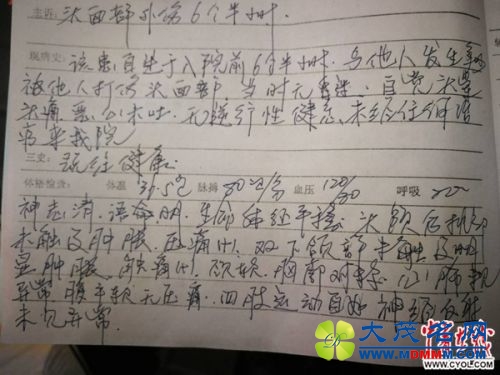 主诉: 头面部外伤6个半小时.
现病史: 该患自述于入院前6个半小时.与他人发生争
被他人打伤头面部,当时无昏迷.自觉头晕
头痛.恶心未吐.无逆行性健忘.未经任何治
来我院
三史: 既往健康.
体格检查: 体温 36.5℃ 脉搏 80次/分 血压 120/80 呼吸
神志清.语言明.生命体征平稳.头颅后枕部
未触及肿胀.压痛(+).双下颌部未触及明
显肿胀.触痛(+).颈软.胸廓对称.心肺无
异常.腹平软无压痛.四肢运动自如.神经反射
未见异常.
大茂名网
WWW.MDMMM.COM
中青在线
WWW.CYOL.COM